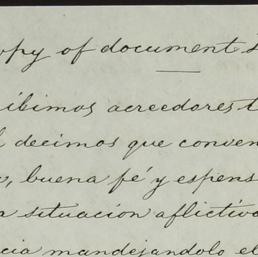 opy of document
ibimos acreedores
decimos que conven
buena fé y espens
a situacion aflictiva
cia mandejandolo el